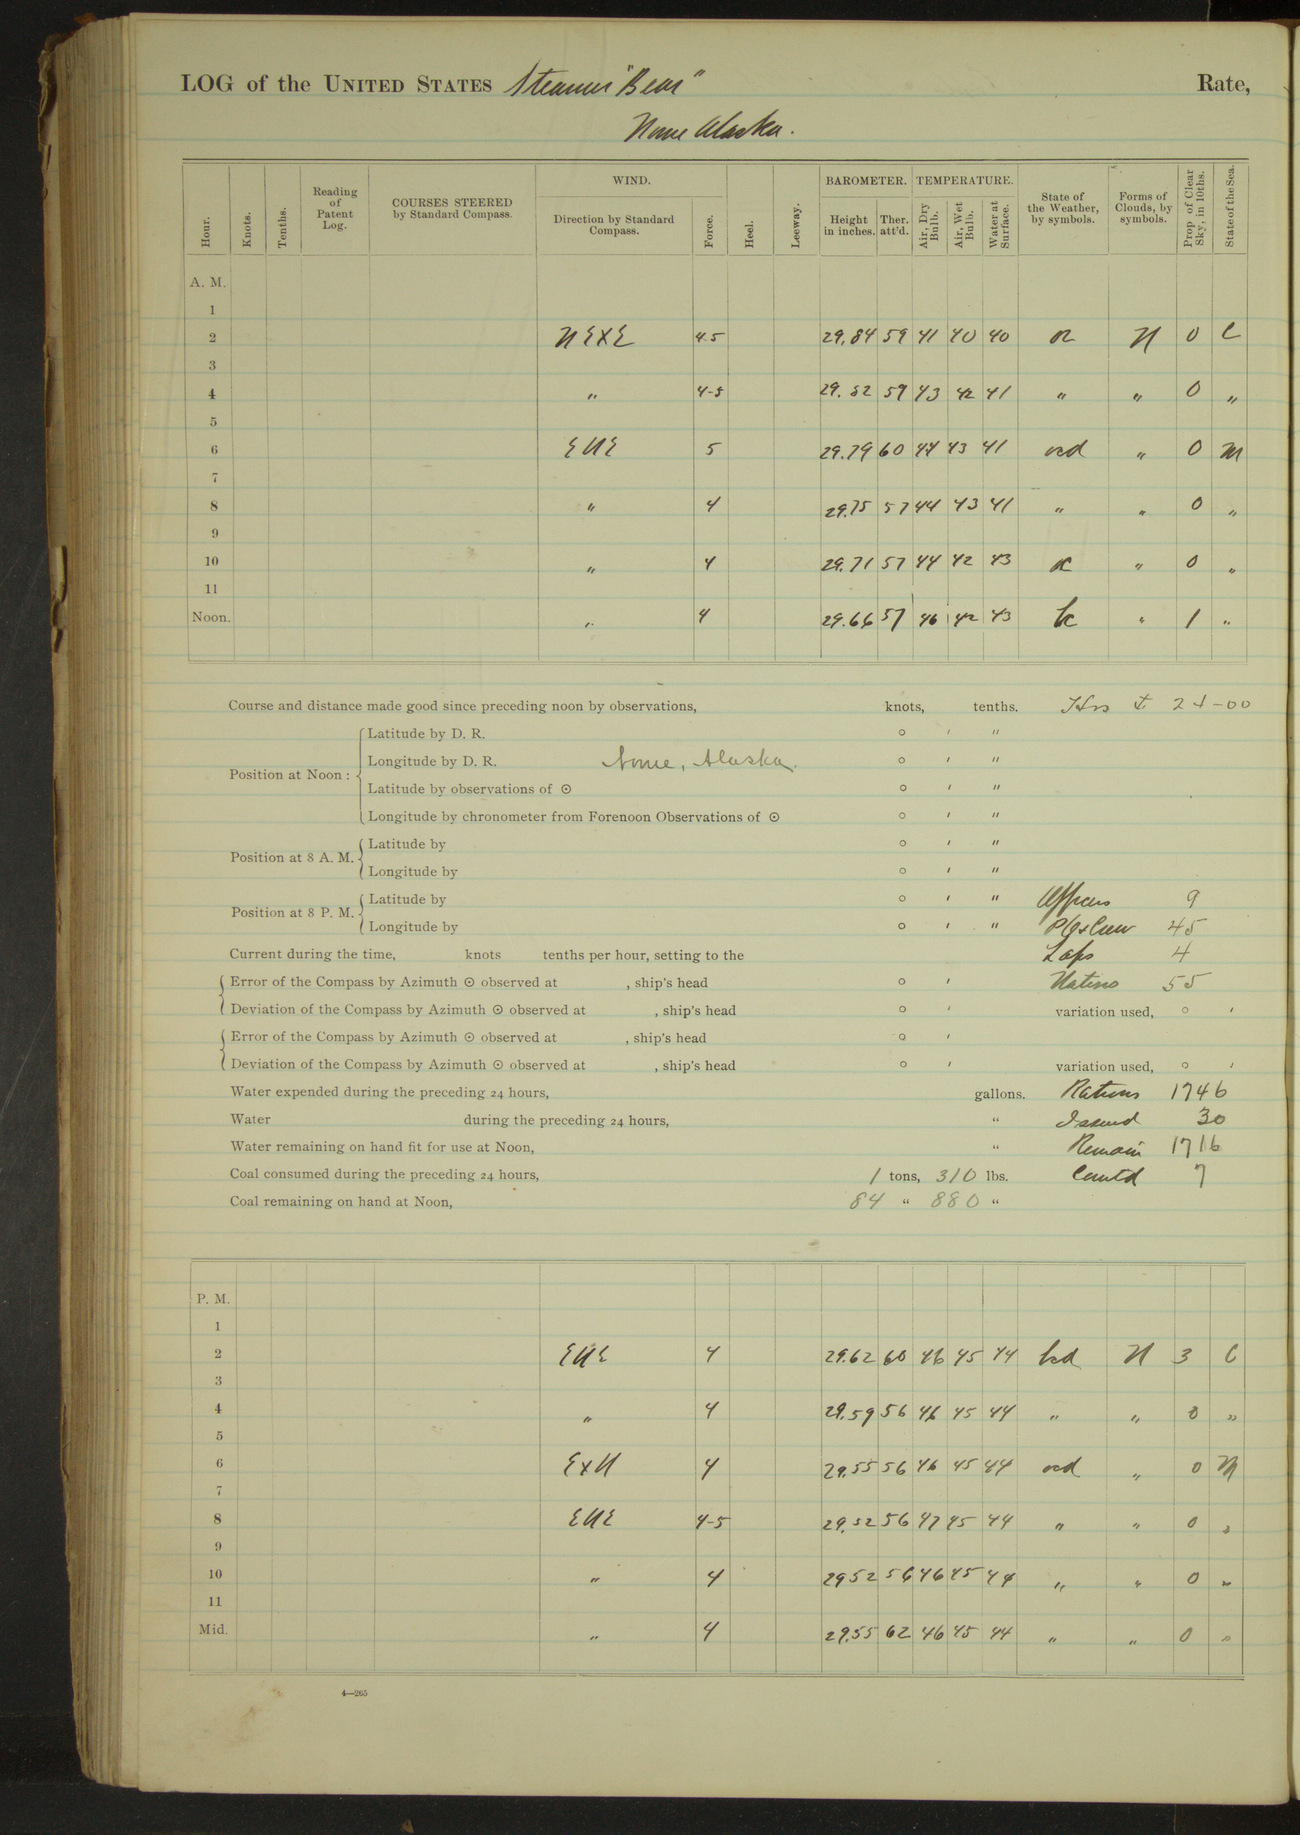 LOG of the UNITED STATES Steamer "Bear" Rate,
Nome Alaska.
Hour. Knots. Tenths. Reading of Patent Log. COURSES STEERED by Standard Compass. WIND. Direction by Standard Compass. Force. Heel. Leeway. BAROMETER. Height in inches. Ther. att'd. TEMPERATURE. Air, Dry Bulb. Air, Wet Bulb. Water at Surface. State of the Weather, by symbols. Forms of Clouds, by symbols. Prop of Clear Sky, in 10ths. State of the Sea.
A. M.
1
2 NExE 4-5 29.84 59 41 40 40 or N 0 C
3
4 " 4-5 29.82 59 43 42 41 " " 0 "
5
6 ENE 5 29.79 60 44 43 41 ocd " 0 M
7
8 " 4 29.75 57 44 43 41 " " 0 "
9
10 " 4 29.71 57 44 42 43 oc " 0 "
11
Noon. " 4 29.66 57 46 42 43 bc " 1 "
Course and distance made good since preceding noon by observations, knots, tenths. Hrs 24-00
Position at Noon :
Latitude by D. R. ° ′ ″
Longitude by D. R. Nome, Alaska. ° ′ ″
Latitude by observations of ☉ ° ′ ″
Longitude by chronometer from Forenoon Observations of ☉ ° ′ ″
Position at 8 A. M.
Latitude by ° ′ ″
Longitude by ° ′ ″
Position at 8 P. M.
Latitude by ° ′ ″ Officers 9
Longitude by ° ′ ″ P.O. & Crew 45
Current during the time, knots tenths per hour, setting to the 4
Error of the Compass by Azimuth ☉ observed at , ship's head ° ′ 55
Deviation of the Compass by Azimuth ☉ observed at , ship's head ° ′ variation used, ° ′
Error of the Compass by Azimuth ☉ observed at , ship's head ° ′
Deviation of the Compass by Azimuth ☉ observed at , ship's head ° ′ variation used, ° ′
Water expended during the preceding 24 hours, gallons. Rations 1746
Water during the preceding 24 hours, " Issued 30
Water remaining on hand fit for use at Noon, " Remain 1716
Coal consumed during the preceding 24 hours, 1 tons, 310 lbs. Comtd 7
Coal remaining on hand at Noon, 84 " 880 "
P. M.
1
2 ENE 4 29.62 60 46 45 44 bcd N 3 C
3
4 " 4 29.59 56 46 45 44 " " 0 "
5
6 ExN 4 29.55 56 46 45 44 ocd " 0 M
7
8 ENE 4-5 29.52 56 47 45 44 " " 0 "
9
10 " 4 29.52 56 46 45 44 " " 0 "
11
Mid. " 4 29.55 62 46 45 44 " " 0 "
4—265